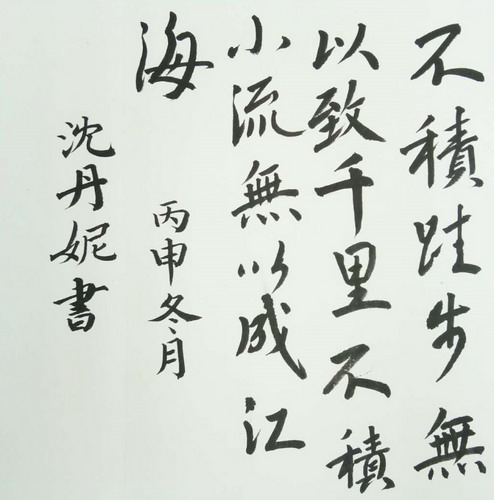 不積跬步無
以致千里不積
小流無以成江
海
丙申冬月
沈丹妮書